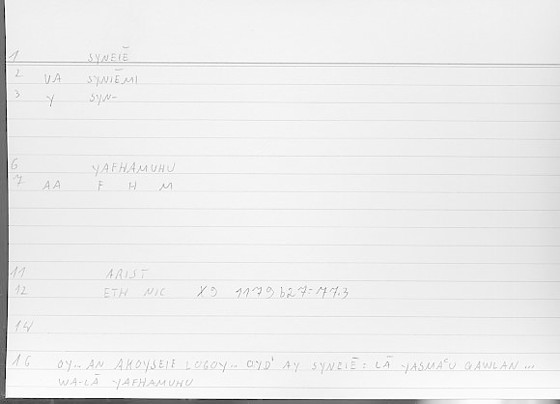 1 SYNEIĒ
2 VA SYNIĒMI
3 Y SYN-
6 YAFHAMUHU
7 AA F H M
11 ARIST
12 ETH NIC X9 1179 b27-77.3
14
16 OY.. AN AKOYSEIE LOGOY.. OYD' AY SYNEIĒ : LĀ YASMAᶜU QAWLAN ...
WA-LĀ YAFHAMUHU